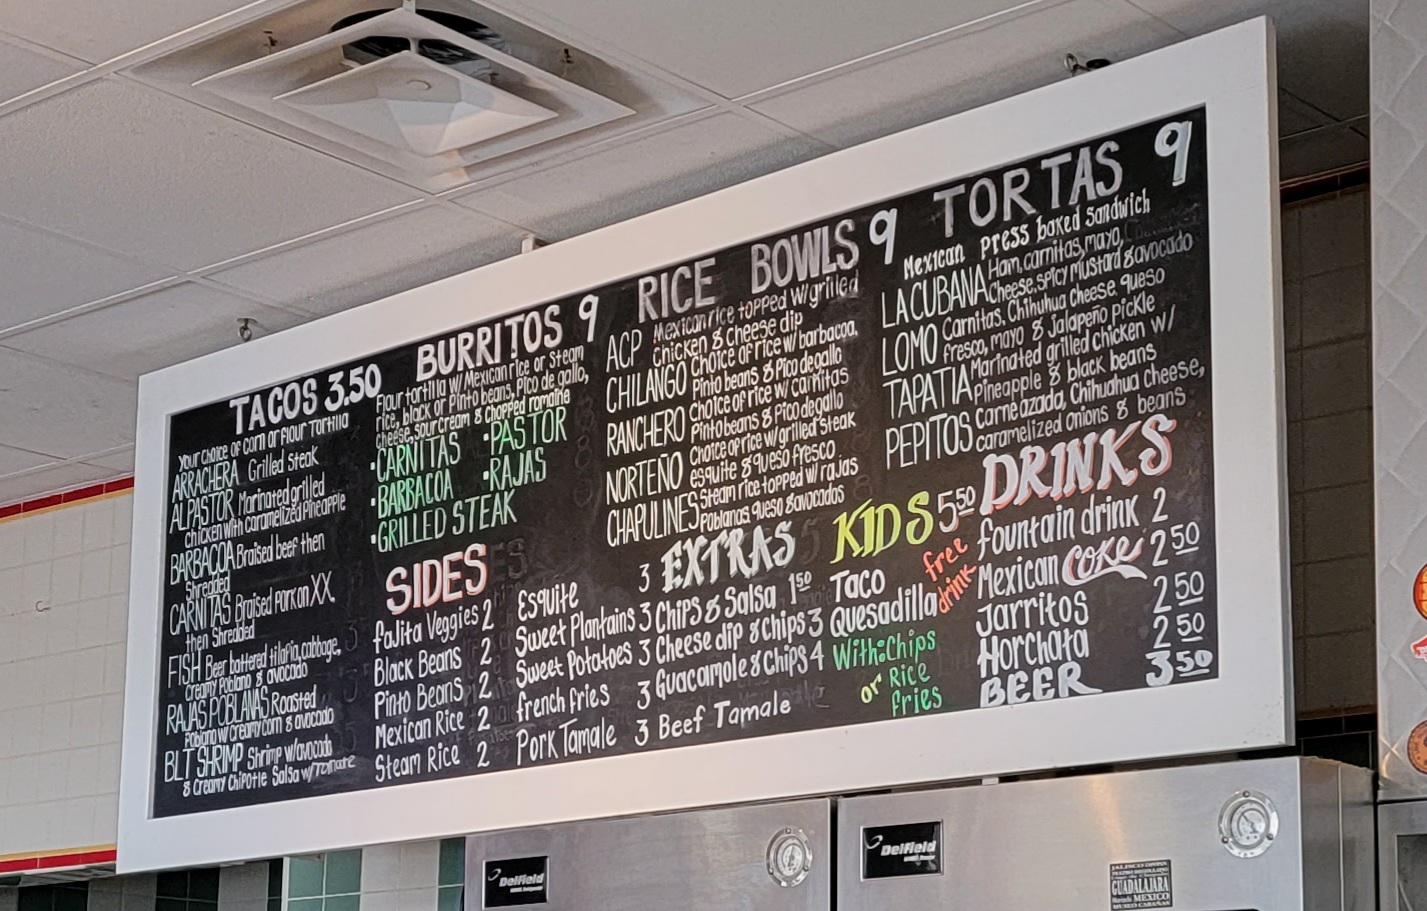 TACOS 3.50
Your choice of corn or flour tortilla
ARRACHERA Grilled steak
ALPASTOR Marinated grilled
chicken with caramelized Pineapple
BARBACOA Braised beef then
Shredded
CARNITAS Braised Pork on XX,
then Shredded
FISH Beer battered tilapia, cabbage,
Creamy Poblano & avocado
RAJAS POBLANAS Roasted
Poblano w/creamy/corn & avocado
BLT SHRIMP Shrimp w/avocado
& Creamy Chipotle Salsa w/Tomate
BURRITOS 9
Flour tortilla w/ Mexican rice or Steam
rice, black or Pinto beans, Pico de gallo,
cheese, sour cream & chopped romaine
•CARNITAS •PASTOR
•BARBACOA •RAJAS
•GRILLED STEAK
SIDES
fajita Veggies 2
Black Beans 2
Pinto Beans 2
Mexican Rice 2
Steam Rice 2
Esquite 3
Sweet Plantains 3
Sweet Potatoes 3
french fries 3
Pork Tamale 3
RICE BOWLS 9
ACP Mexican rice topped w/grilled
Chicken & Cheese dip
CHILANGO Choice of rice w/ barbacoa,
Pinto beans & Pico de gallo
RANCHERO Choice of rice w/ carnitas
Pinto beans & Pico de gallo
NORTEÑO Choice of rice w/ grilled steak
esquite & queso fresco
CHAPULINES Steam rice topped w/ rajas
Poblanas, queso & avocados
EXTRAS
Chips & Salsa 1.50
Cheese dip & chips 3
Guacamole & Chips 4
Beef Tamale
TORTAS 9
Mexican press baked sandwich
LA CUBANA Ham, carnitas, mayo,
Cheese, spicy mustard & avocado
LOMO Carnitas, Chihuhua cheese, queso
fresco, mayo & jalapeño pickle
TAPATIA Marinated grilled chicken w/
pineapple & black beans
PEPITOS Carne azada, Chihuahua cheese,
caramelized onions & beans
KIDS 5.50
free
drink
Taco
Quesadilla
With: Chips
or Rice
fries
DRINKS
fountain drink 2
Mexican Coke 2.50
Jarritos 2.50
Horchata 2.50
BEER 3.50
Delfield
Delfield
GUADALAJARA
MEXICO